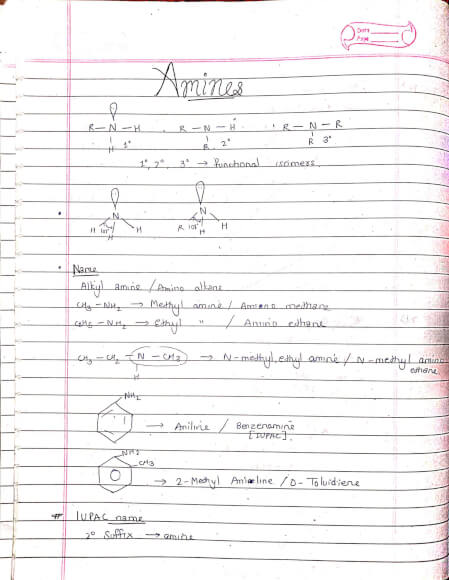 Date
Page
Amines
R—N—H R—N—H R—N—R
H 1° R 2° R 3°
1°, 2°, 3° → functional isomers
N N
H 107° H H R 105° H H
Name
Alkyl amine / Amino alkane
CH3—NH2 → Methyl amine / Amino methane
C2H5—NH2 → Ethyl " / Amino ethane
CH3—CH2—N—CH3 → N-methyl, ethyl amine / N-methyl amino
H ethane
NH2
→ Aniline / Benzenamine
[IUPAC].
NH2
CH3
→ 2-Methyl Aniline / O-Toluidiene
# IUPAC name
2° Suffix → amine